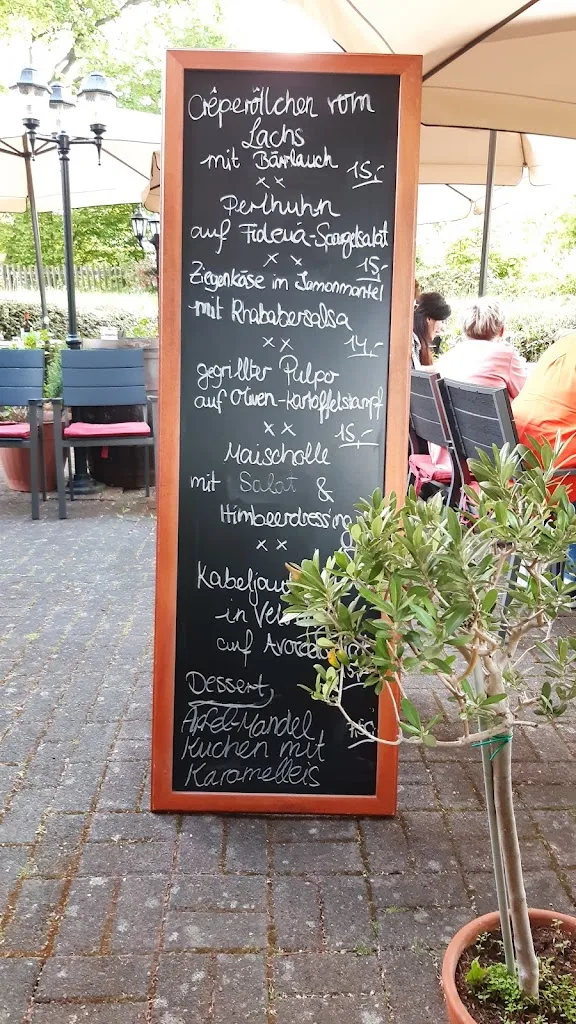 Crêperöllchen vom
Lachs
mit Bärlauch 15,-
x x
Perlhuhn
auf Fideuá-Spargelsalat
x x 15,-
Ziegenkäse im Jamonmantel
mit Rhabarbersalsa
x x 14,-
gegrillter Pulpo
auf Oliven-Kartoffelstampf
x x 15,-
Maischolle
mit Salat &
Himbeerdressing
x x
in
auf
Dessert,
Apfel-Mandel
Kuchen mit
Karamelleis